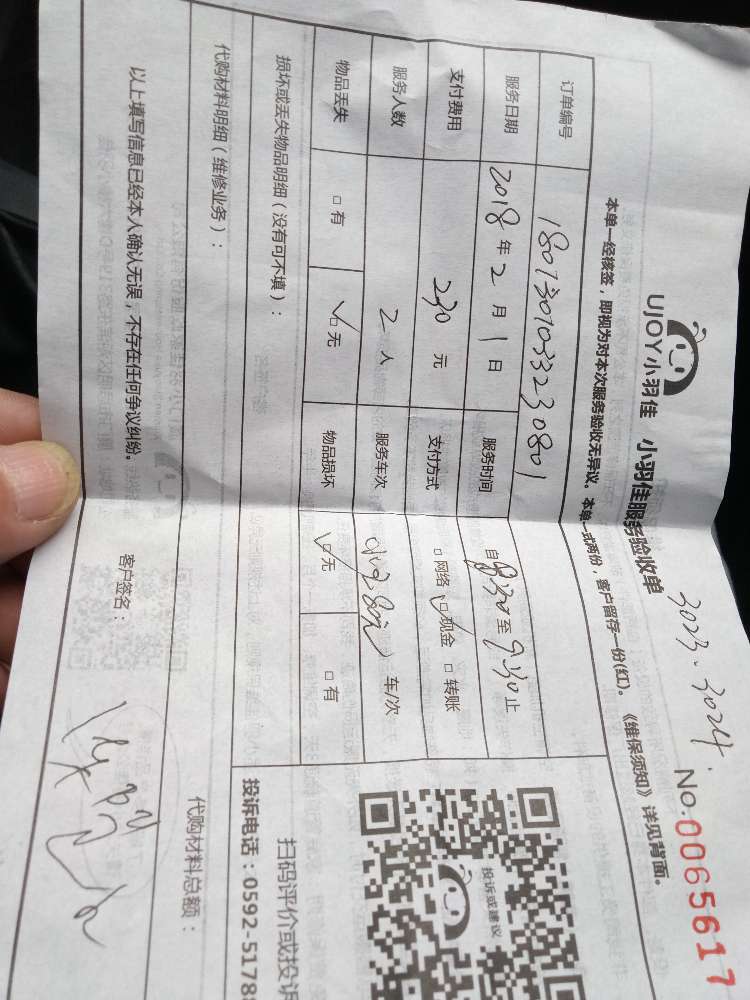 3023.3024.
UJOY小羽佳 小羽佳服务验收单
No.0065617
本单一经核签，即视为对本次服务验收无异议。本单一式两份，客户留存一份(红)。《维保须知》详见背面。
订单编号 1801301033230801
服务日期 2018年2月1日 服务时间 自8:30至9:30止
支付费用 230元 支付方式 □网络 ☑现金 □转账
服务人数 2人 服务车次 车/次
物品丢失 □有 ☑无 物品损坏 ☑无 □有
损坏或丢失物品明细（没有可不填）：
投诉或建议
扫码评价或投诉
投诉电话：0592-5178
代购材料明细（维修业务）： 代购材料总额：
以上填写信息已经本人确认无误，不存在任何争议纠纷。 客户签名：